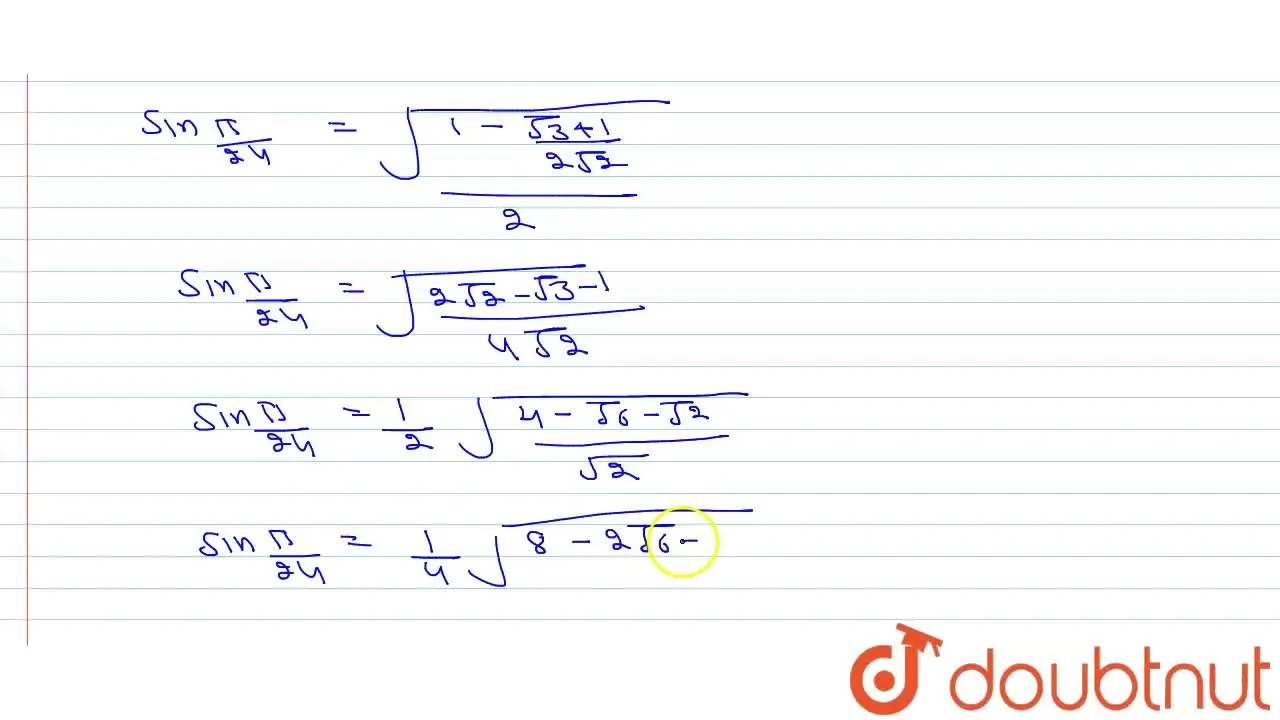 Sin π/24 = √((1 - (√3+1)/(2√2))/2)
Sin π/24 = √((2√2 - √3 - 1)/(4√2))
Sin π/24 = 1/2 √((4 - √6 - √2)/√2)
Sin π/24 = 1/4 √(8 - 2√6 -
doubtnut